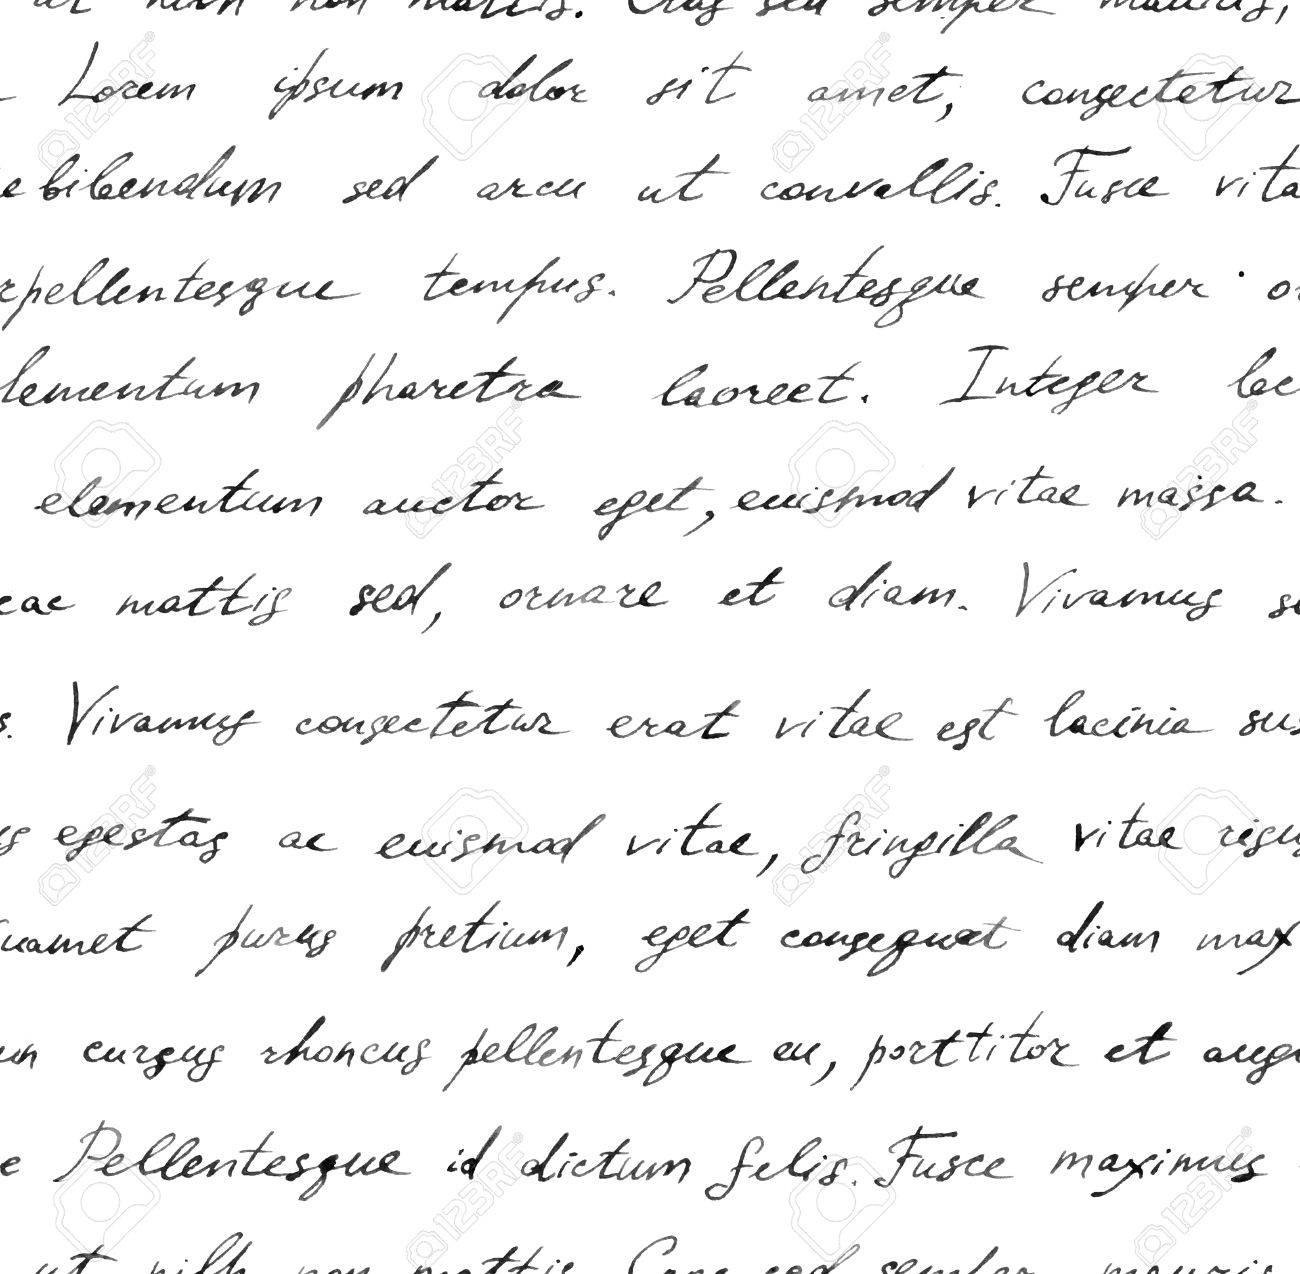 ut nibh non mattis. Cras sed semper mauris,
Lorem ipsum dolor sit amet, consectetur
e bibendum sed arcu ut convallis. Fusce vita
rpellentesque tempus. Pellentesque semper or
lementum pharetra laoreet. Integer lac
elementum auctor eget, euismod vitae massa.
eac mattis sed, ornare et diam. Vivamus se
s. Vivamus consectetur erat vitae est lacinia sus
us egestas ac euismod vitae, fringilla vitae risus
uamet purus pretium, eget consequat diam max
un cursus rhoncus pellentesque eu, porttitor et augu
e Pellentesque id dictum felis. Fusce maximus
ut nibh non mattis Cras sed semper mauris